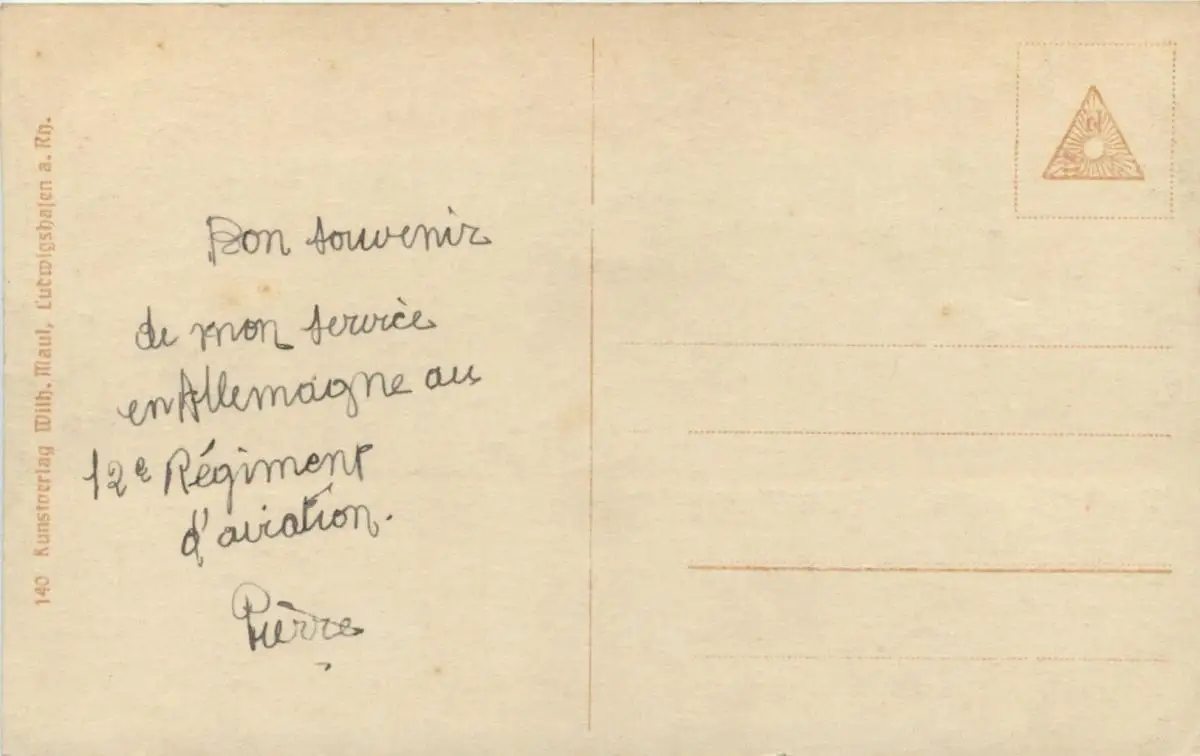 Bon souvenir
de mon service
en Allemagne au
12e Régiment
d'aviation.
Pierre
140 Kunstverlag Wilh. Maul, Ludwigshafen a. Rh.